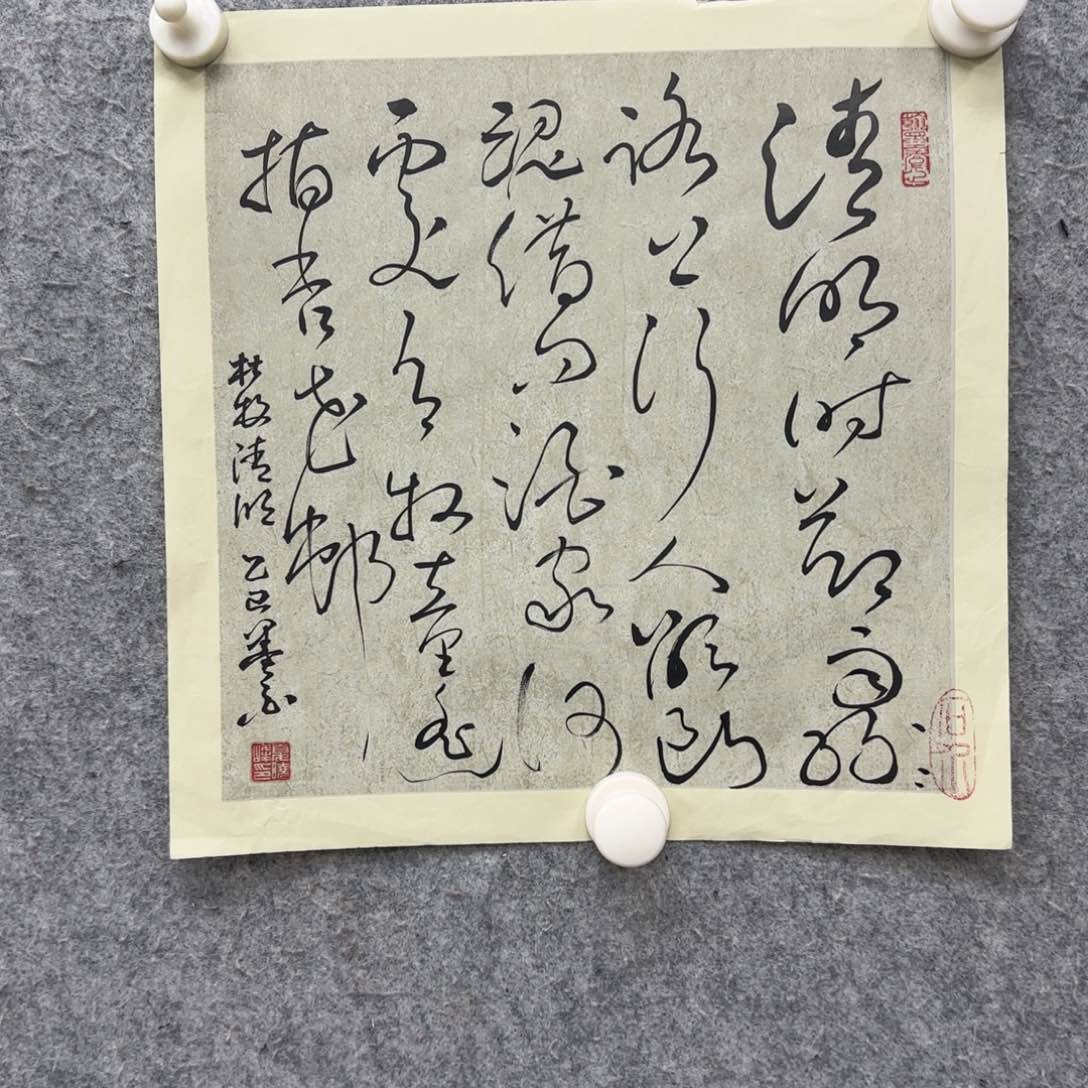 清明时节雨纷纷
路上行人欲断
魂借问酒家何
處有牧童遥
指杏花邨
杜牧清明 乙巳墨